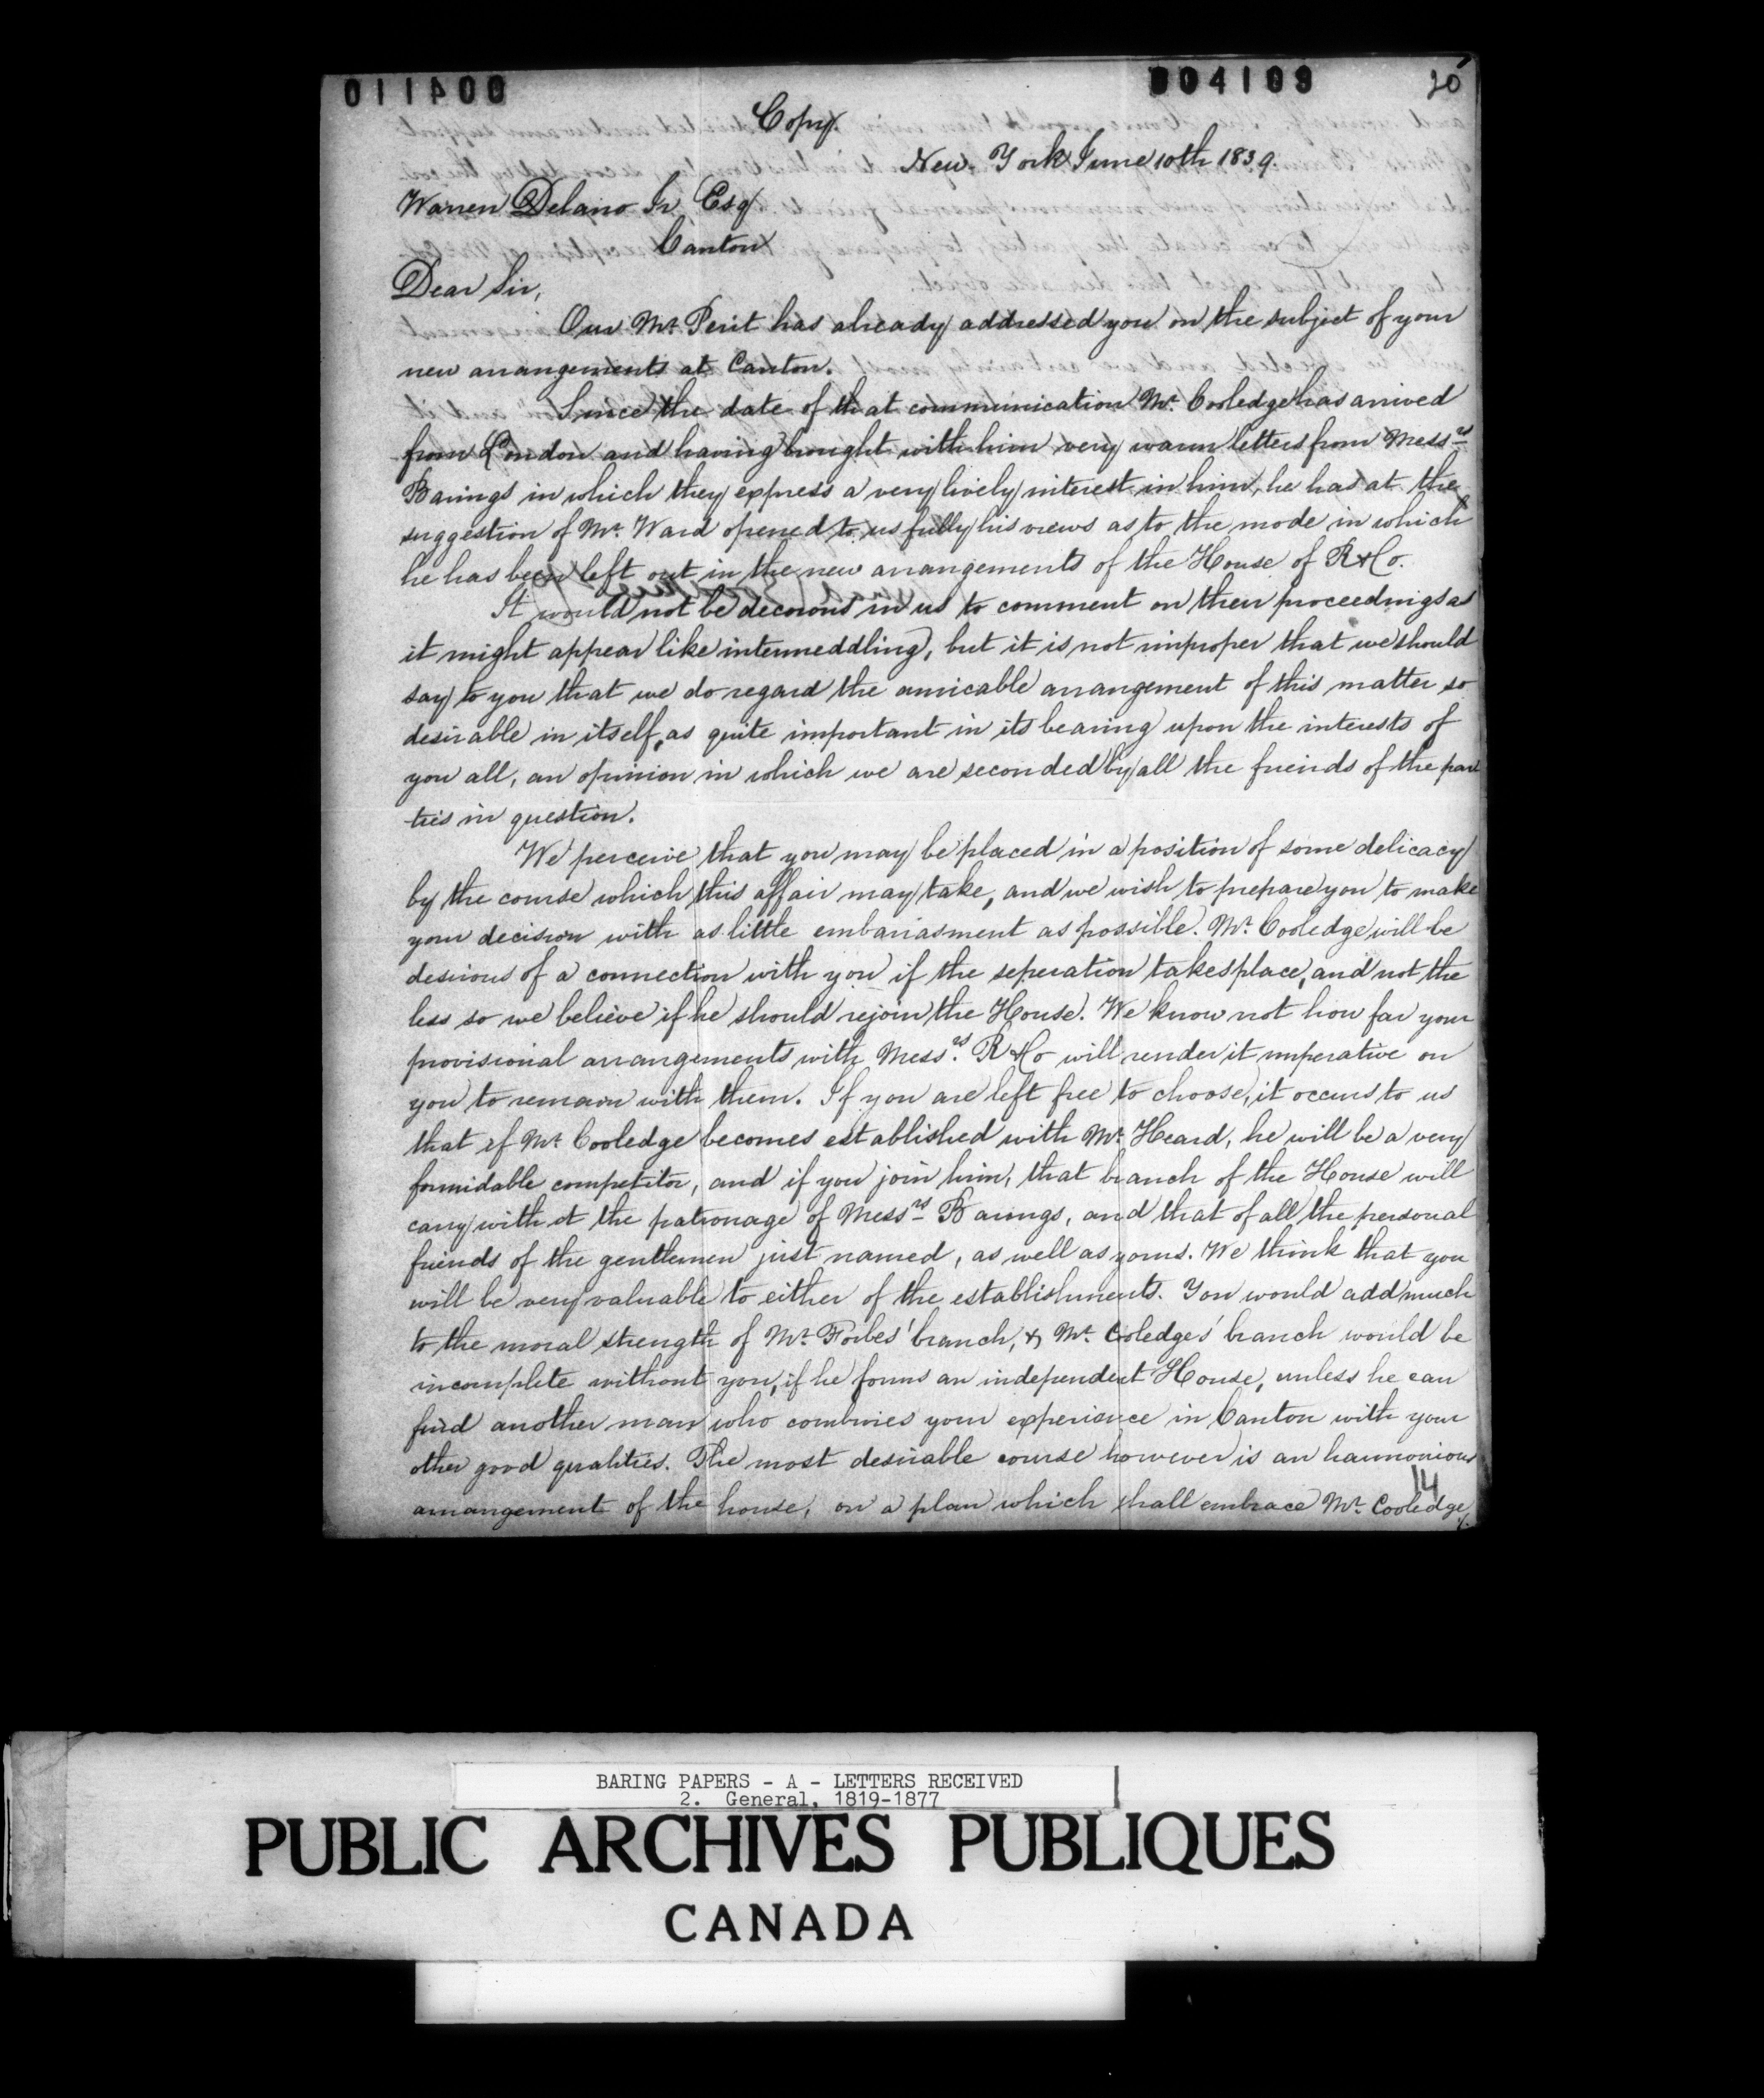 004109
20
Copy.
New-York June 10th 1839.
Warren Delano Jr. Esq
Canton
Dear Sir,
Our Mr. Perit has already addressed you on the subject of your
new arrangements at Canton.
Since the date of that communication Mr. Cooledge has arrived
from London and having brought with him very warm letters from Messrs
Barings in which they express a very lively interest in him, he has at the
suggestion of Mr. Ward opened to us fully his views as to the mode in which
he has been left out in the new arrangements of the House of R&Co.
It would not be decorous in us to comment on their proceedings as
it might appear like intermeddling, but it is not improper that we should
say to you that we do regard the amicable arrangement of this matter so
desirable in itself, as quite important in its bearing upon the interests of
you all, an opinion in which we are seconded by all the friends of the par
ties in question.
We perceive that you may be placed in a position of some delicacy
by the course which this affair may take, and we wish to prepare you to make
your decision with as little embarrasment as possible. Mr. Cooledge will be
desirous of a connection with you if the seperation takes place, and not the
less so we believe if he should rejoin the House. We know not how far your
provisional arrangements with Messrs. R&Co will render it imperative on
you to remain with them. If you are left free to choose, it occurs to us
that if Mr. Cooledge becomes established with Mr. Heard, he will be a very
formidable competitor, and if you join him, that branch of the House will
carry with it the patronage of Messrs Barings, and that of all the personal
friends of the gentlemen just named, as well as yours. We think that you
will be very valuable to either of the establishments. You would add much
to the moral strength of Mr. Forbes' branch, & Mr. Cooledges' branch would be
incomplete without you, if he forms an independent House, unless he can
find another man who combines your experience in Canton with your
other good qualities. The most desirable course however is an harmonious
14
arrangement of the house, on a plan which shall embrace Mr. Cooledge
BARING PAPERS - A - LETTERS RECEIVED
2. General, 1819-1877
PUBLIC ARCHIVES PUBLIQUES
CANADA